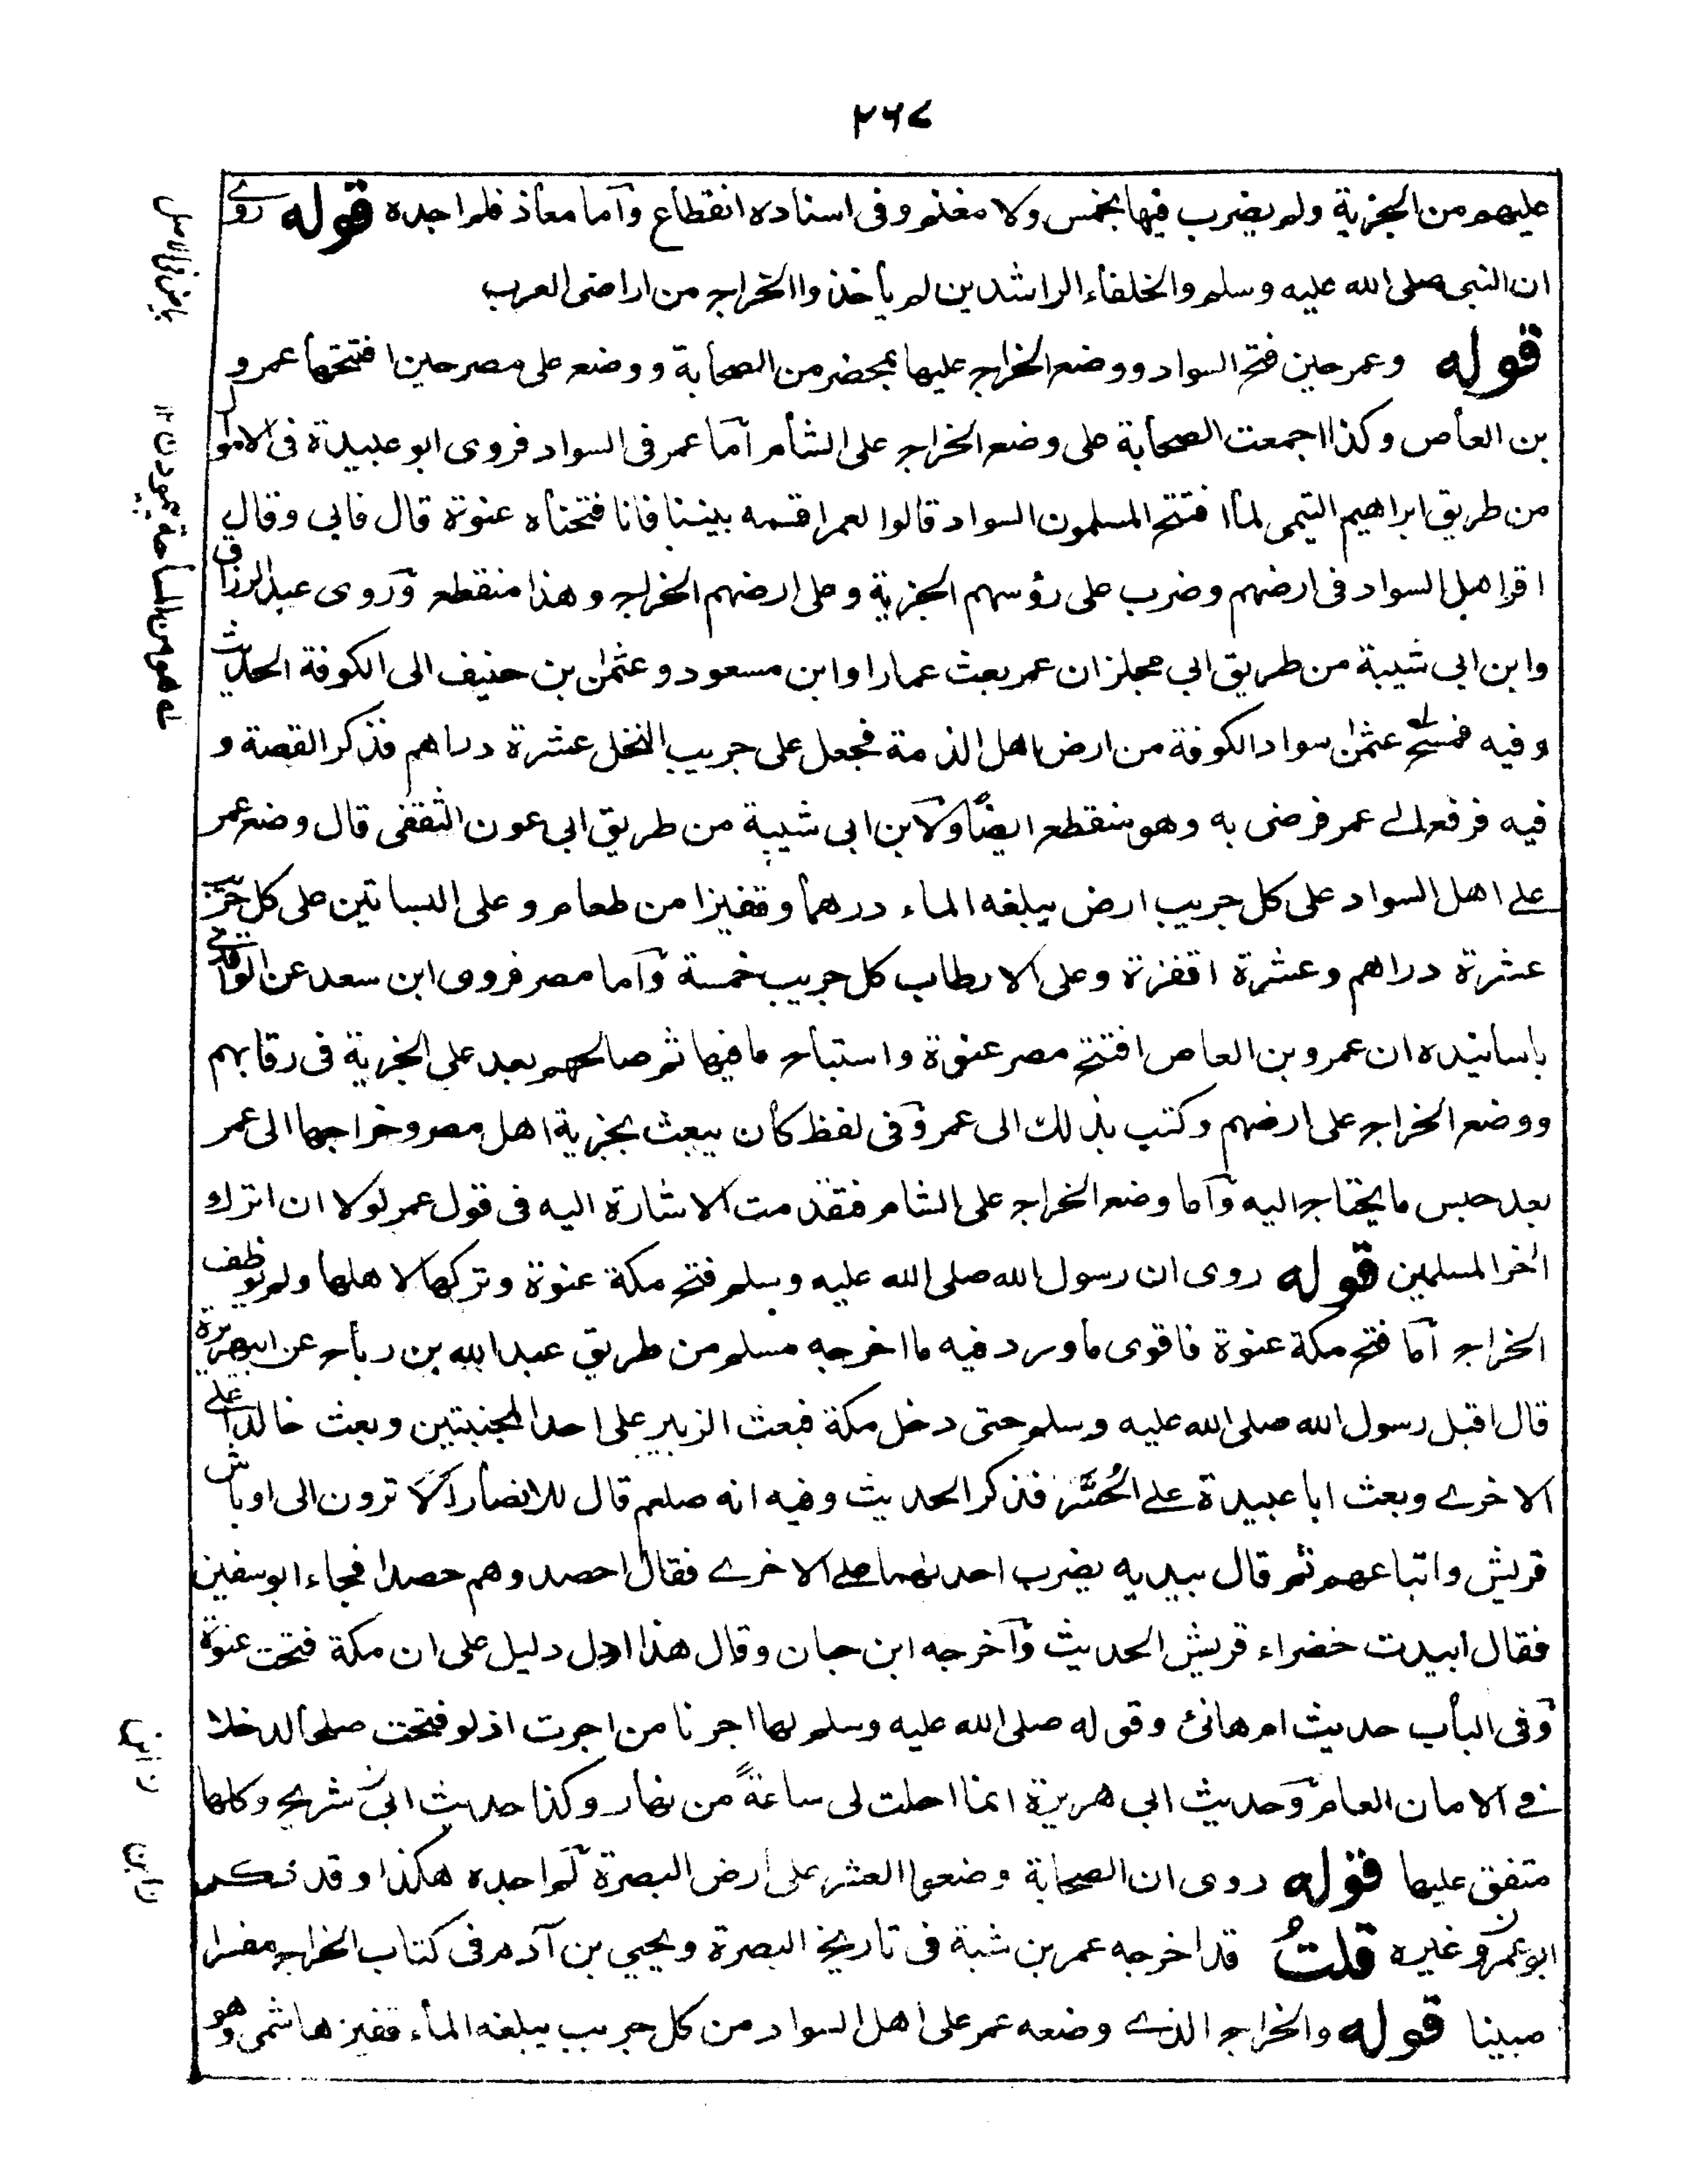 ٢٦٧
عليهم من الجزية ولم يضرب فيها بخمس ولا مغنم وفى اسناده انقطاع وآما معاذ فلم اجده قوله روے
ان النبى صلى الله عليه وسلم والخلفاء الراشدين لم يأخذوا الخراج من اراضى العرب
بياض فى الاصل
قوله وعمر حين فتح السواد ووضع الخراج عليها بمحضر من الصحابة ووضع على مصر حين افتتحها عمرو
بن العاص وكذا اجمعت الصحابة على وضع الخراج على الشام آما عمر فى السواد فروى ابو عبيدة فى الاموال
من طريق ابراهيم التيمى لما افتتح المسلمون السواد قالوا لعمر اقسمه بيننا فانا فتحناه عنوة قال فابى وقال
اقر اهل السواد فى ارضهم وضرب على رؤسهم الجزية وعلى ارضهم الخراج وهذا منقطع وروى عبد الرزاق
وابن ابى شيبة من طريق ابى مجلز ان عمر بعث عمارا وابن مسعود وعثمٰن بن حنيف الى الكوفة الحديث
وفيه فمسح عثمٰن سواد الكوفة من ارض اهل الذمة فجعل على جريب النخل عشرة دراهم فذكر القصة و
له هو من المساحة پیمودن ١٢
فيه فرفع الے عمر فرضى به وهو منقطع ايضًا ولابن ابى شيبة من طريق ابى عون الثقفى قال وضع عمر
علے اهل السواد على كل جريب ارض يبلغه الماء درهما وقفيزا من طعام و على البساتين على كل جريب
عشرة دراهم وعشرة اقفزة وعلى الارطاب كل جريب خمسة وآما مصر فروى ابن سعد عن الواقدے
باسانيده ان عمرو بن العاص افتتح مصر عنوة واستباح ما فيها ثم صالحهم بعد على الجزية فى رقابهم
ووضع الخراج على ارضهم وكتب بذلك الى عمر وفى لفظ كان يبعث بجزية اهل مصر وخراجها الى عمر
بعد حبس ما يحتاج اليه وآما وضع الخراج على الشام فقد تقدمت الاشارة اليه فى قول عمر لولا ان اترك
اخر المسلمين قوله روى ان رسول الله صلى الله عليه وسلم فتح مكة عنوة وتركها لاهلها ولم يوظف
الخراج آما فتح مكة عنوة فاقوى ما ورد فيه ما اخرجه مسلم من طريق عبد الله بن رباح عن ابى هريرة
قال اقبل رسول الله صلى الله عليه وسلم حتى دخل مكة فبعث الزبير على احد المجنبتين وبعث خالدا علے
الاخرے وبعث ابا عبيدة علے الحُسَّر فذكر الحديث وفيه انه صلعم قال للانصار اَلَا ترون الى اوباش
قريش واتباعهم ثم قال بيديه يضرب احدٰىهما علے الاخرے فقال احصدوهم حصدا فجاء ابو سفين
فقال ابيدت خضراء قريش الحديث وآخرجه ابن حبان وقال هذا ادل دليل على ان مكة فتحت عنوة
وفى الباب حديث ام هانئ وقوله صلى الله عليه وسلم لها اجرنا من اجرت اذ لو فتحت صلحا لدخلا
فے الامان العام وحديث ابى هريرة انما احلت لى ساعةً من نهار وكذا حديث ابى شريح وكلها
متفق عليها قوله روى ان الصحابة وضعوا العشر على ارض البصرة لم اجده هكذا وقد ذكر
ن ابن
ابو عمر وغيره قلتُ قد اخرجه عمر بن شبة فى تاريخ البصرة ويحيى بن آدم فى كتاب الخراج مفسرا
مبينا قوله والخراج الذے وضعه عمر على اهل السواد من كل جريب يبلغه الماء قفيز هاشمى وهو